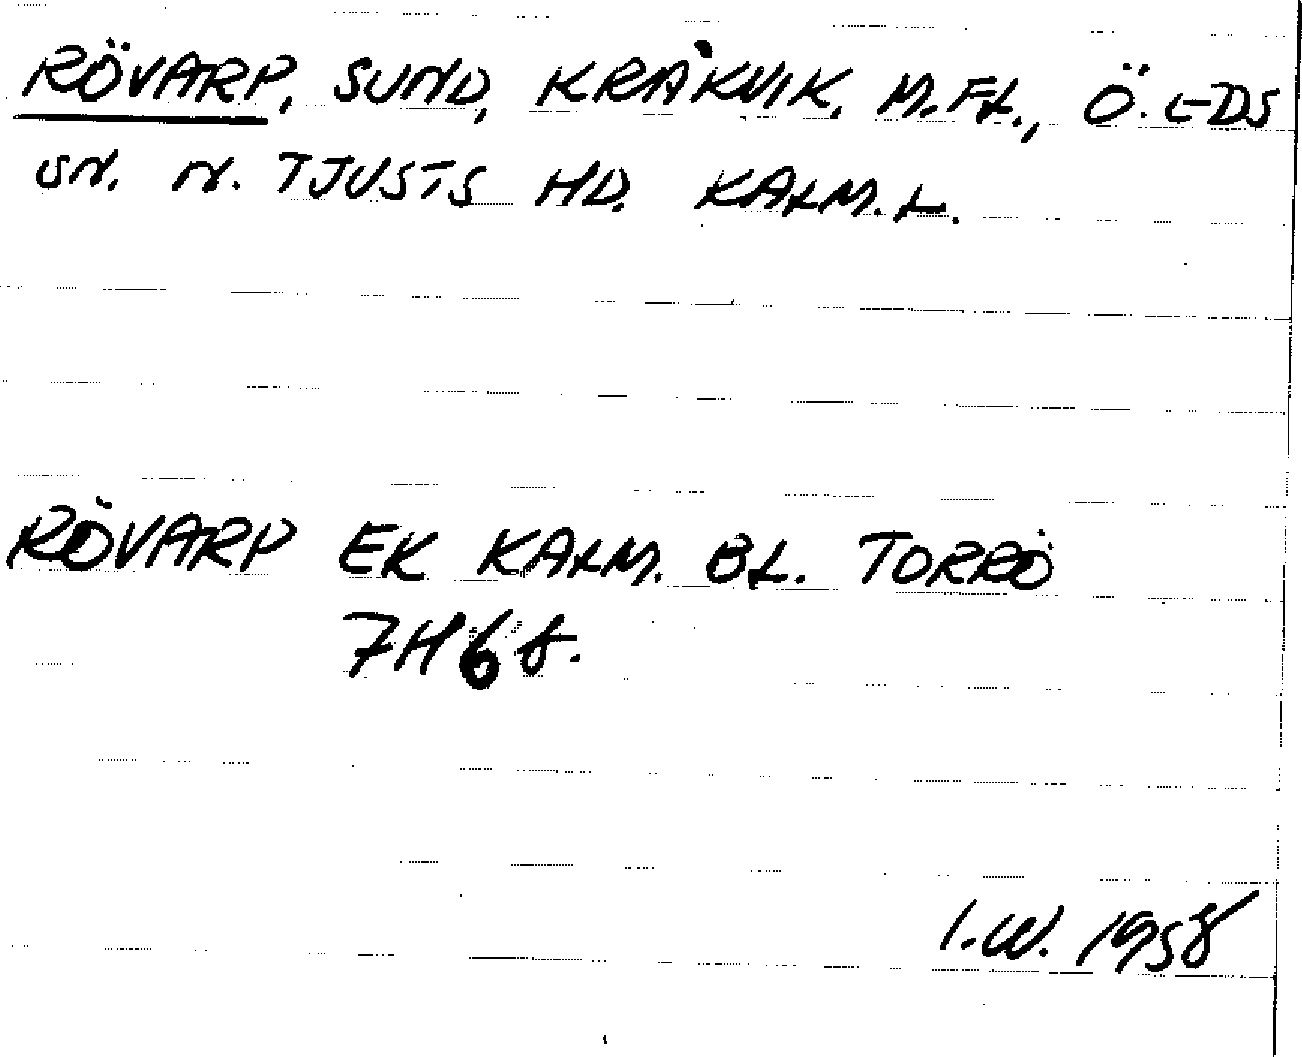 RÖVARP, SUND, KRÅKVIK. M.FL., Ö. EDS
SN. N. TJUSTS HD. KALM. L.
RÖVARP EK KALM. BL. TORRÖ
7H6f.
I.W. 1958